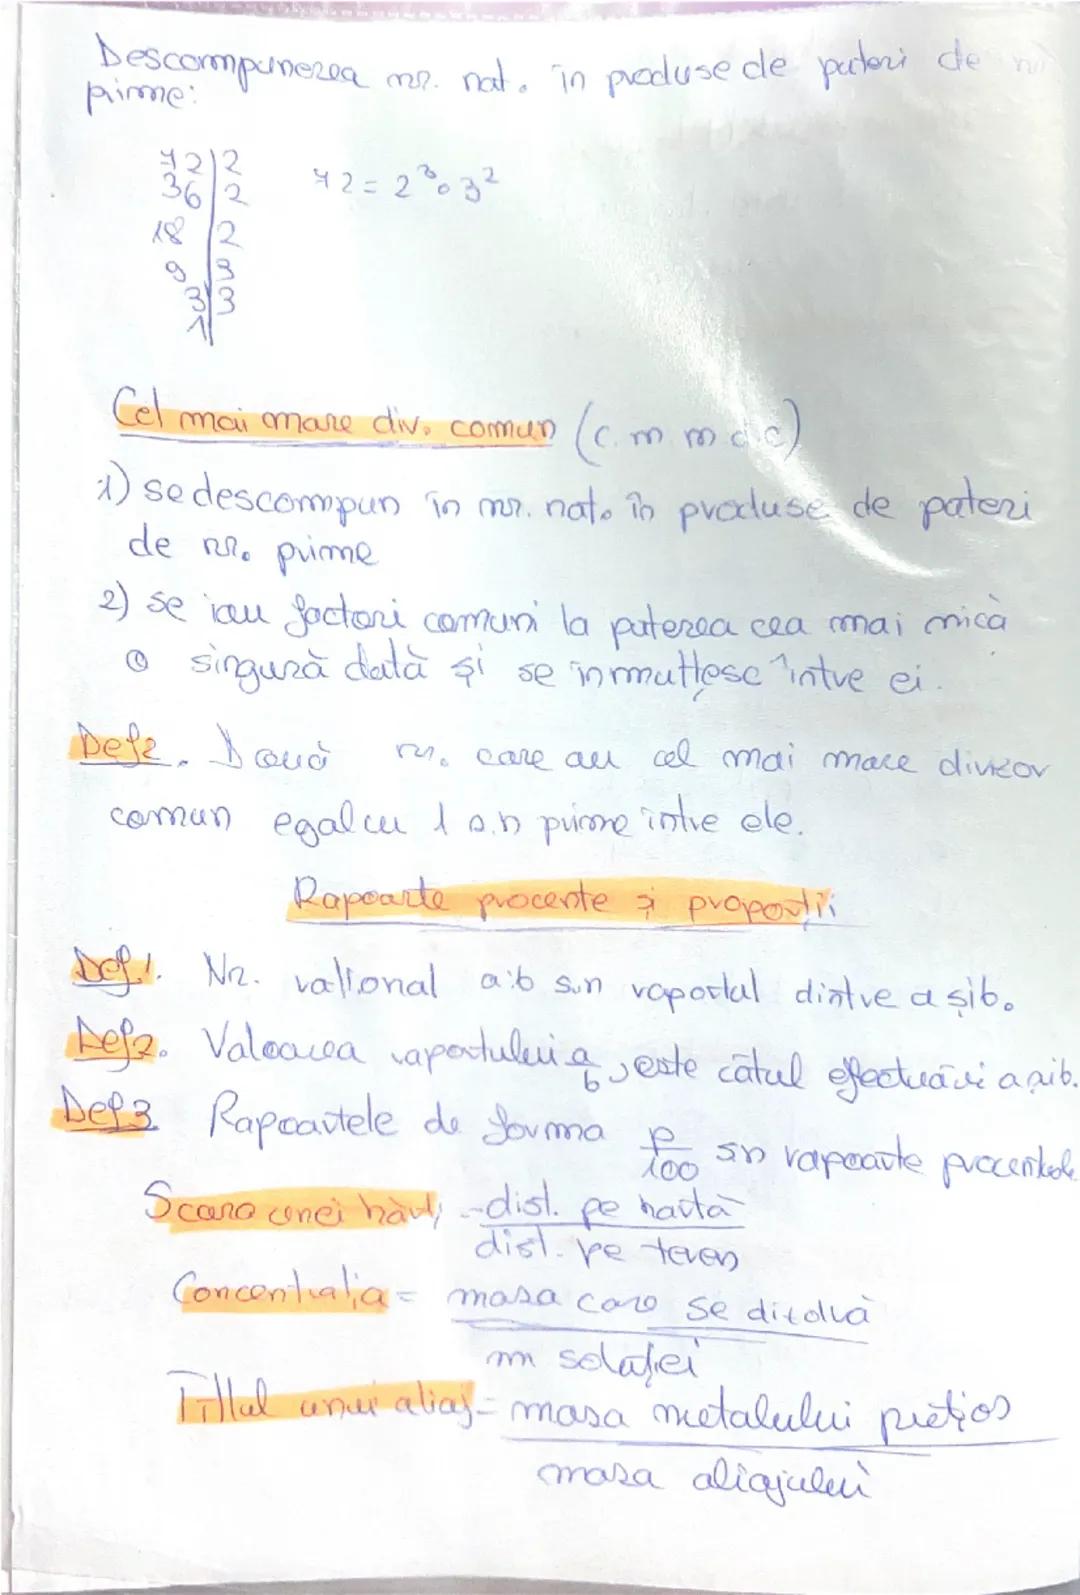 Descompunerea nr. nat. în produse de puteri de nr
prime:
72 | 2
36 | 2
18 | 2
9 | 3
3 | 3
1
72 = 2³ · 3²
Cel mai mare div. comun (c.m.m.d.c)
1) se descompun în nr. nat. în produse de puteri
de nr. prime
2) se iau factori comuni la puterea cea mai mică
o singură dată și se înmulțesc între ei.
Def2. Două nr. care au cel mai mare divizor
comun egal cu 1 s.n prime între ele.
Rapoarte procente și proporții
Def.1. Nr. rațional a:b s.n raportul dintre a și b.
Def2. Valoarea raportului a/b, este câtul efectuării a și b.
Def3 Rapoartele de forma p/100 sn rapoarte procentuale
Scara unei hărți = dist. pe hartă
dist. pe teren
Concentrația = masa care se dizolvă
m soluției
Titlul unui aliaj = masa metalului prețios
masa aliajului